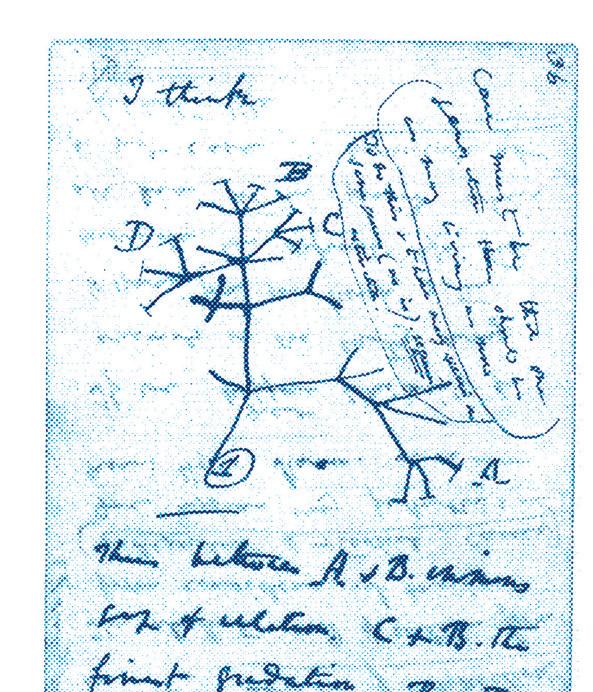 I think
36
B
D
C
1
A
Thus between A & B. immens
gap of relation. C & B. the
finest gradation
Case must be that one
generation then should be
as many living as now
To do this & to have many species in
same genus (as is)
requires
extinction